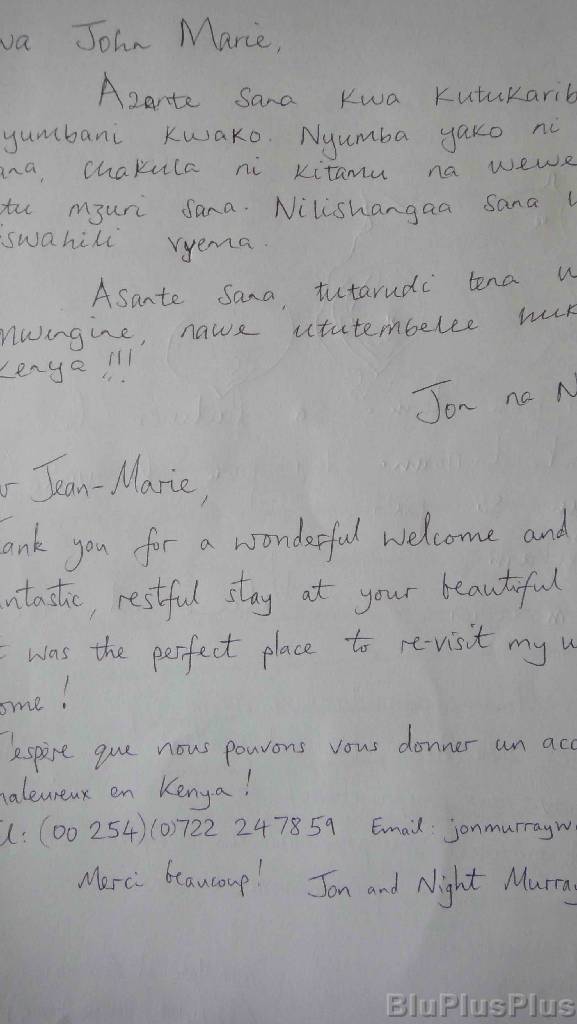 John Marie,
Asante Sana Kwa Kutukarib
yumbani Kwako. Nyumba yako ni
ana, chakula ni kitamu na wewe
tu mzuri sana. Nilishangaa sana
iswahili vyema.
Asante Sana, tutarudi tena w
mwingine, nawe ututembelee huk
Kenya !!!
Jon na N
r Jean-Marie,
ank you for a wonderful welcome and
ntastic, restful stay at your beautiful
t was the perfect place to re-visit my
ome!
J'espère que nous pouvons vous donner un acc
haleureux en Kenya!
l: (00 254)(0)722 247859 Email: jonmurrayw
Merci beaucoup! Jon and Night Murray
BluPlusPlus